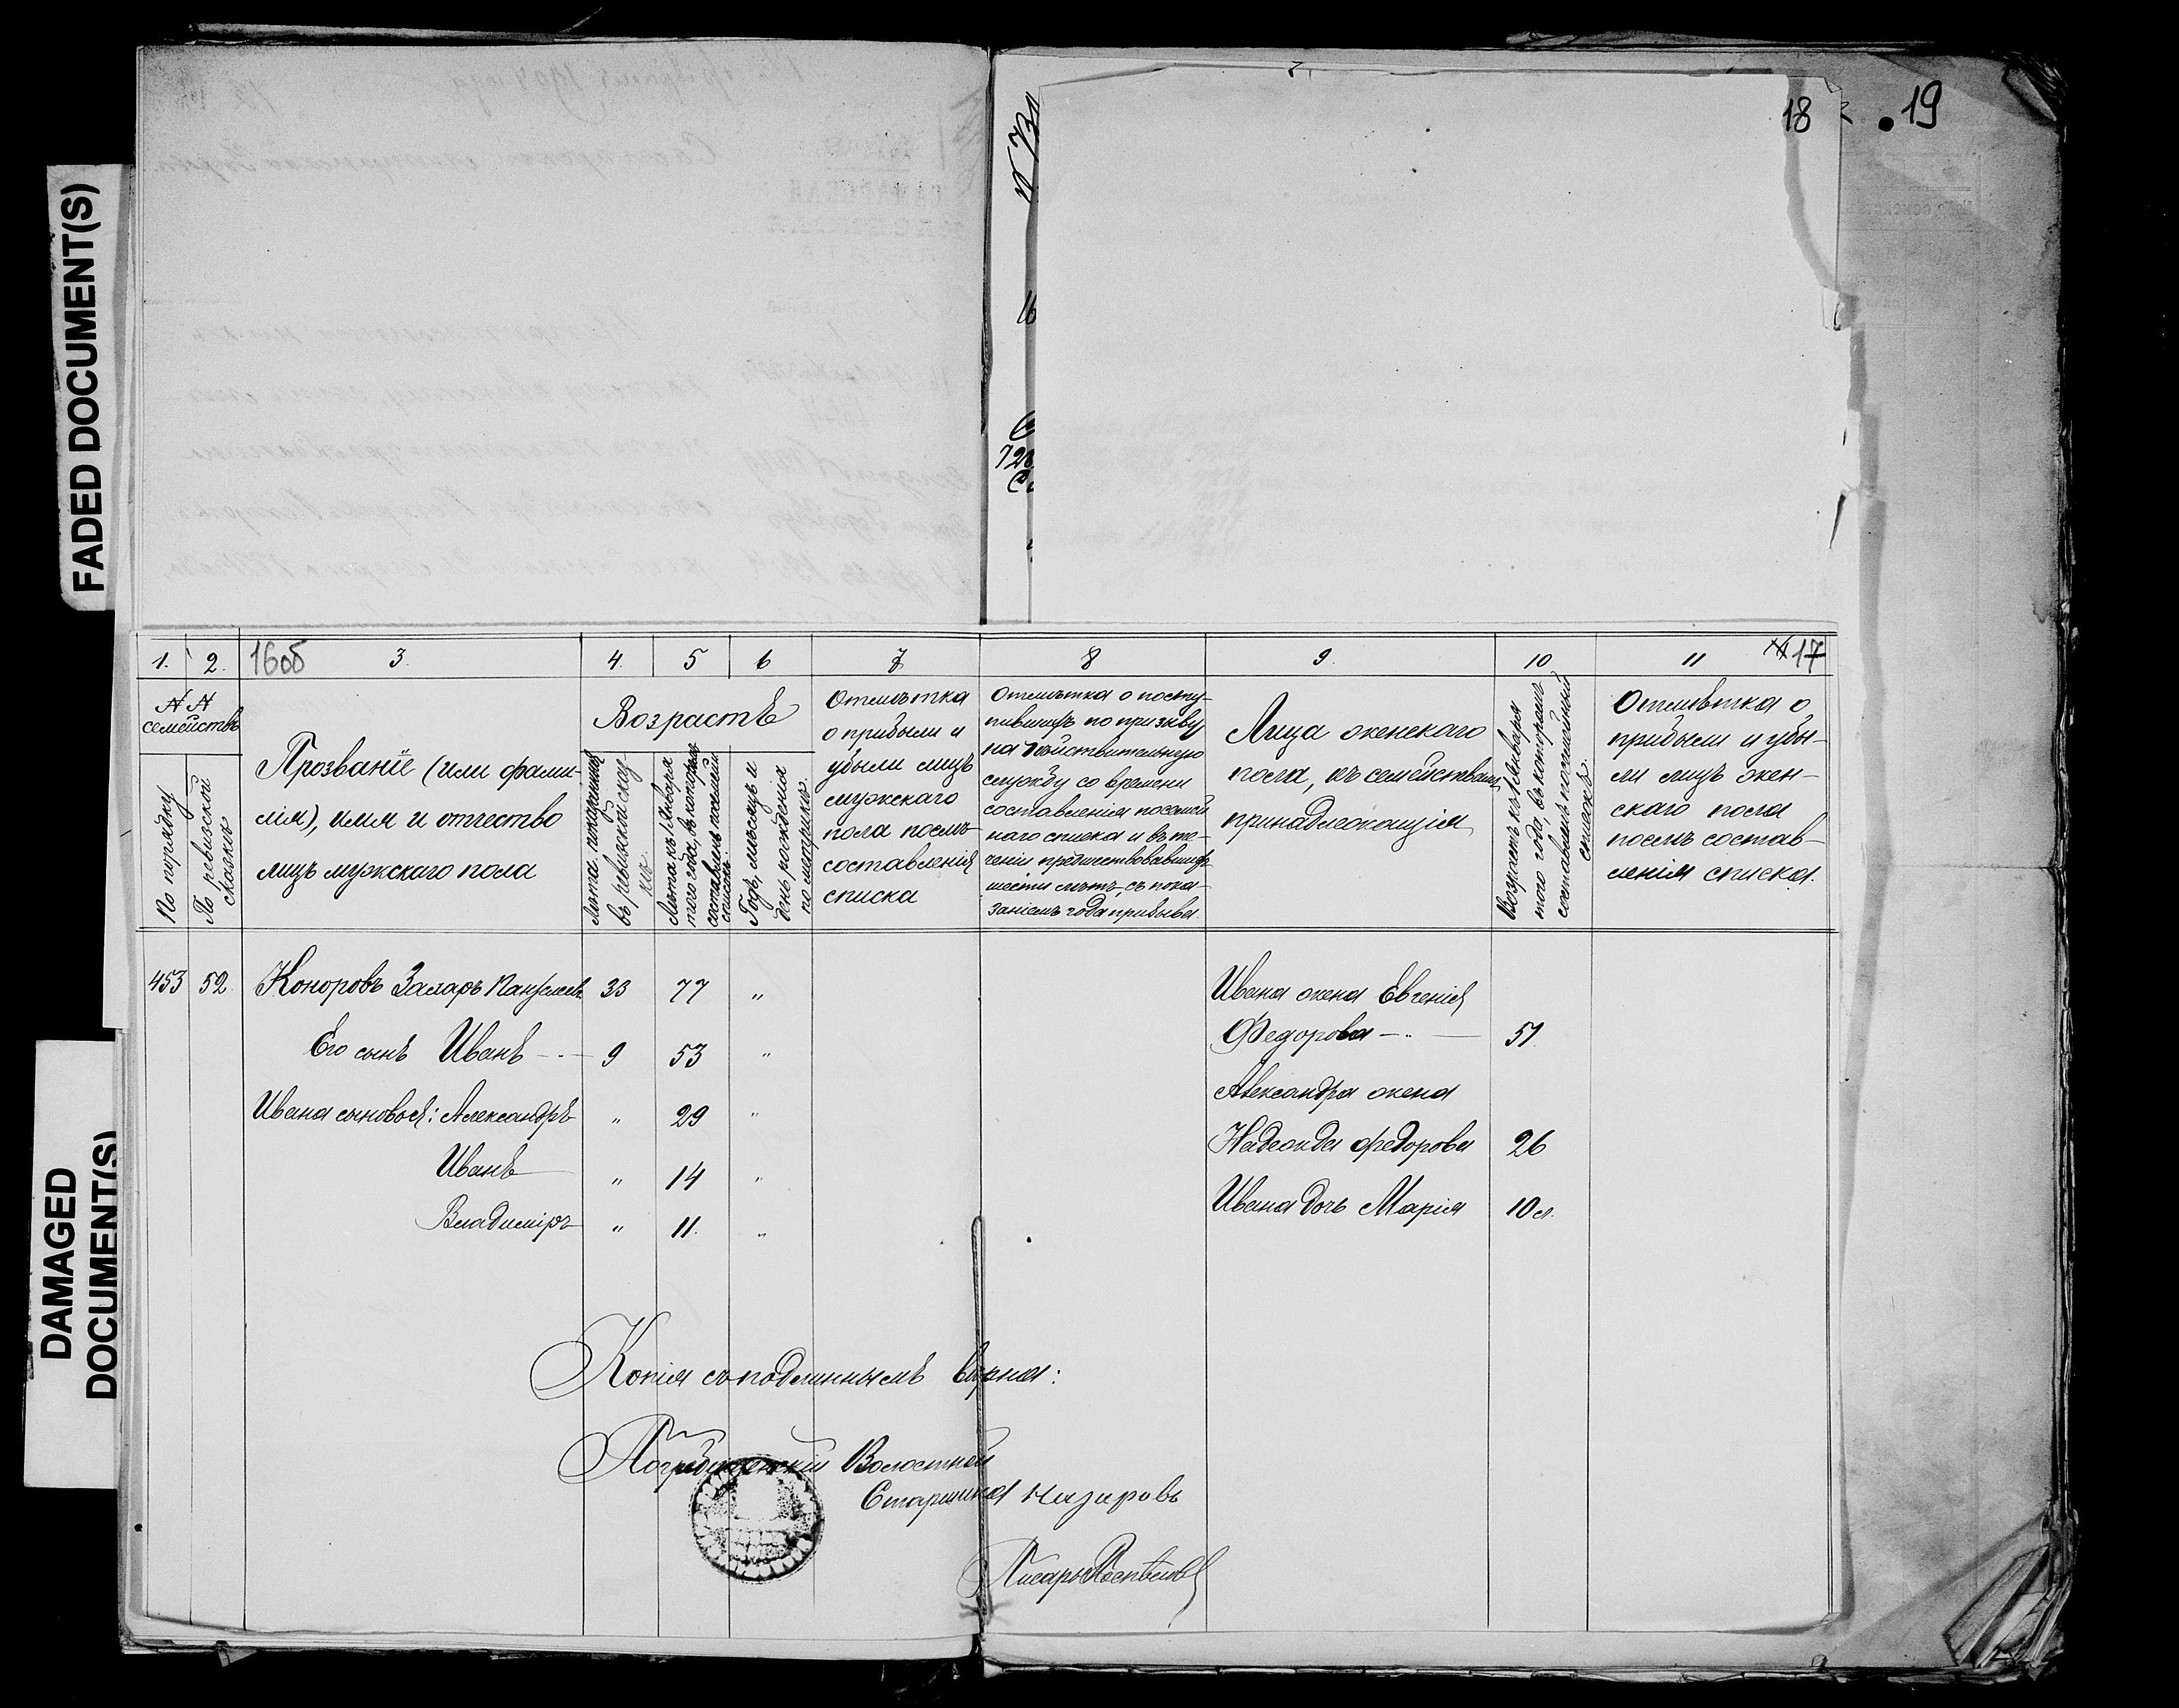 FADED DOCUMENT(S)
DAMAGED
DOCUMENT(S)
18
19
16об
17
1. 2. 3. 4. 5 6 7 8 9. 10 11
№№
семействъ
По порядку
По ревизской
сказкѣ
Прозваніе (или фами-
лія), имя и отчество
лицъ мужскаго пола
Возрастъ
Лѣта показанныя
въ ревизской сказ
кѣ.
Лѣта къ 1 Января
того года, въ которомъ
составленъ посемейн
списокъ.
Годъ, мѣсяцъ и
день рожденія
по метрикѣ.
Отмѣтка
о прибыли и
убыли лицъ
мужскаго
пола послѣ
составленія
списка
Отмѣтка о посту-
пившихъ по призыву
на дѣйствительную
службу со времени
составленія посемей
наго списка и въ те-
ченіи предшествовавшихъ
шести лѣтъ, съ пока-
заніемъ года призыва
Лица женскаго
пола, къ семействамъ
принадлежащія
Возрастъ къ 1 Января
того года, въ которомъ
составленъ посемейный
списокъ.
Отмѣтка о
прибыли и убы-
ли лицъ жен-
скаго пола
послѣ состав-
ленія списка.
453 52 Коноровъ Захаръ 33 77 "
Его сынъ Иванъ 9 53 "
Ивана сыновья: Александръ " 29 "
Иванъ " 14 "
Владиміръ " 11. "
Ивана жена Евгенія
Федорова 51
Александра жена
Надежда Федорова 26
Ивана дочь Марія 10 л.
Копія съ подлиннымъ вѣрна:
Волостной
Старшина Назаровъ
Писарь